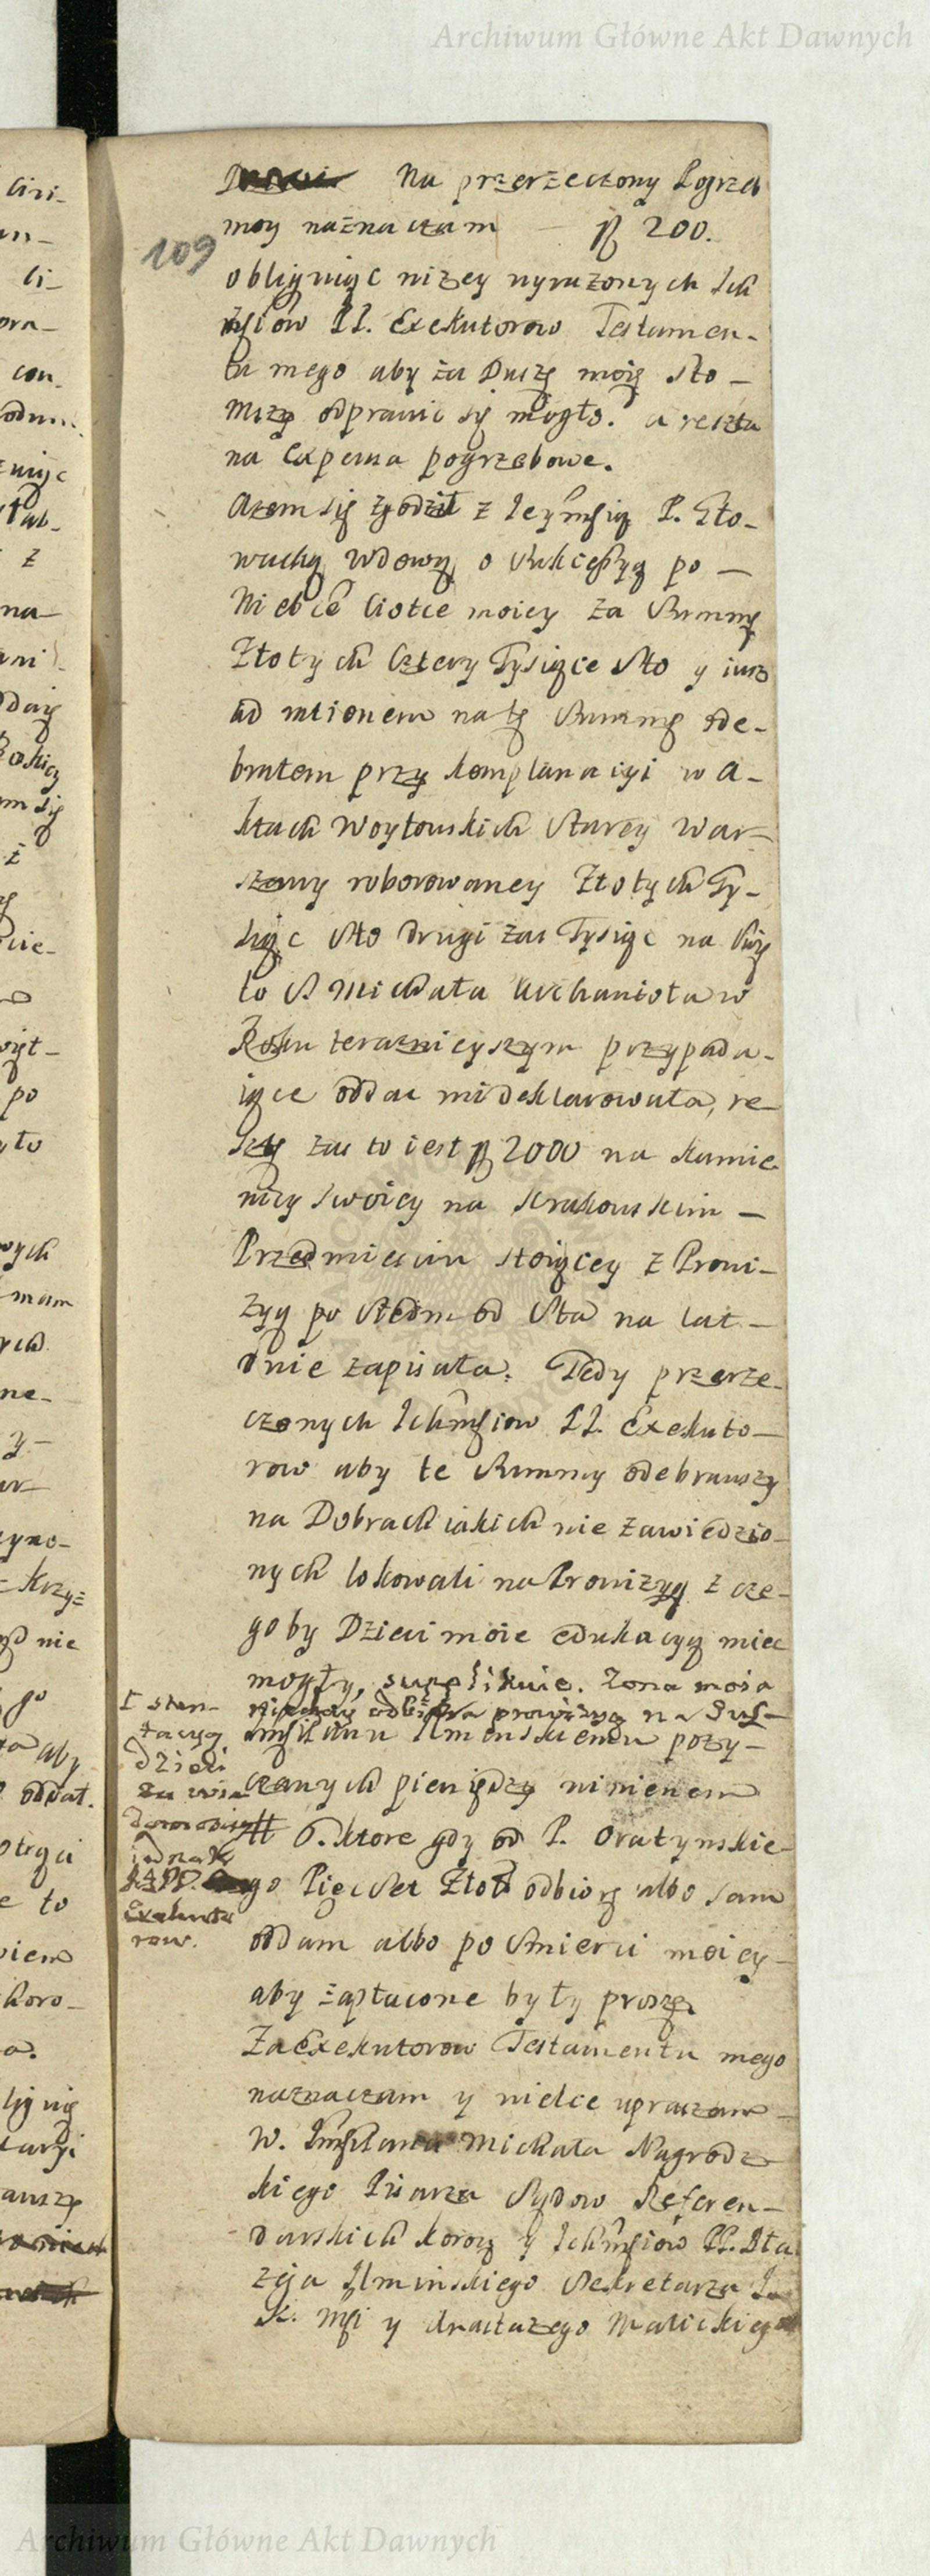 Archiwum Główne Akt Dawnych
Na przerzeczony Pogrzeb
moy naznaczam — fl 200.
109
obliguiąc niżey wyrażonych Ich
Mściow PP. Exekutorow Testamen-
tu mego aby za Duszę moię sto —
Mszy odprawić się mogło. a reszta
na Expensa pogrzebowe.
Azem się zgodził z Jeymścią P. Gło-
wacką Wdową o Sukcessyą po —
Ciotce moiey za Summę
Złotych Cztery Tysiące Sto y iusz
ad mtionem na tę Summę ode-
brałem przy komplanacyi w A-
ktach Woytowskich Starey War-
szawy roborowaney Złotych Ty-
siąc Sto drugi zas Tysiąc na Swię
to S Michała Archanioła w
Roku teraznieyszym przypada-
iące oddac mi deklarowała, re-
sztę zas to iest fl 2000 na kamie-
nicy swoiey na Krakowskim —
Przedmiesciu stoiącey z Prowi-
zyą po Siedm od Sta na lat —
dwie zapisała. Tedy przerze-
czonych Ichmściow PP. Exekuto-
row aby te Summy odebrawszy
na Dobrach iakich nie zawiedzio-
nych lokowali na Prowizyą z cze-
go by Dzieci moie edukacyą miec
mogły, supplikuię. Zona moia
niechay odbiera prowizyą na Sus-
tentacyą
dzieci
iednak
PP.
Exekuto
row.
Jmścianu Ilminskiemu poży-
czanych pieniędzy winienem
# 6. ktore gdy od P. Oratynskie-
go Pięcset Złot odbiorę albo sam
oddam albo po Smierci moiey —
aby zapłacone były proszę.
Za Exekutorow Testamentu mego
naznaczam y wielce upraszam —
W. Jmściana Michała Nagrodz-
kiego Pisarza Sądow Referen-
darskich Koron y Ichmściow PP. Bła
zeja Ilminskiego Sekretarza J.
K. Mści y Malickiego
Archiwum Główne Akt Dawnych